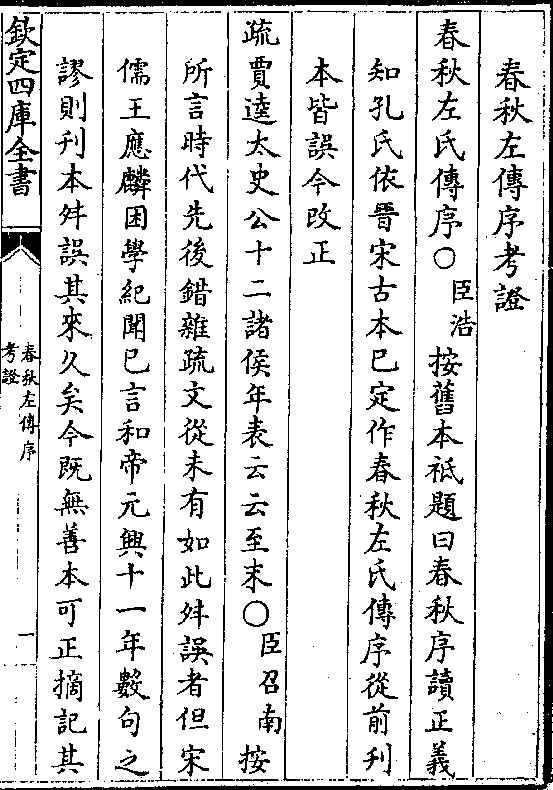 春秋左傳序考證
春秋左氏傳序○臣浩按舊本祗題曰春秋序讀正義
知孔氏依晉宋古本已定作春秋左氏傳序從前刊
本皆誤今改正
疏賈逵太史公十二諸侯年表云云至末○臣召南按
所言時代先後錯雜疏文從未有如此舛誤者但宋
儒王應麟困學紀聞已言和帝元興十一年數句之
謬則刊本舛誤其來久矣今既無善本可正摘記其
欽定四庫全書
春秋左傳序
考證
一